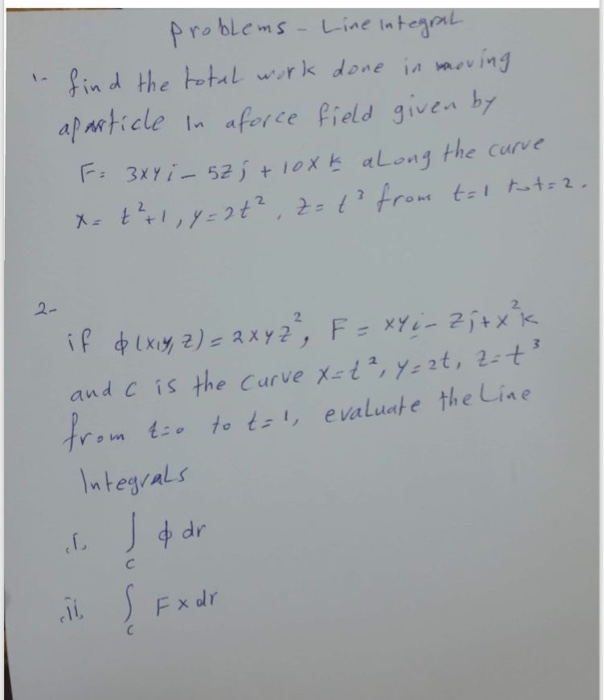 Problems - Line integral
1- find the total work done in moving
aparticle in aforce field given by
F = 3xyi - 5zj + 10xk along the curve
x = t²+1, y = 2t², z = t³ from t=1 to t=2.
2-
if ϕ(x,y,z) = 2xyz², F = xyi - zj + x²k
and c is the curve x=t², y=2t, z=t³
from t=0 to t=1, evaluate the Line
Integrals
.i. ∫c ϕ dr
.ii. ∫c F x dr